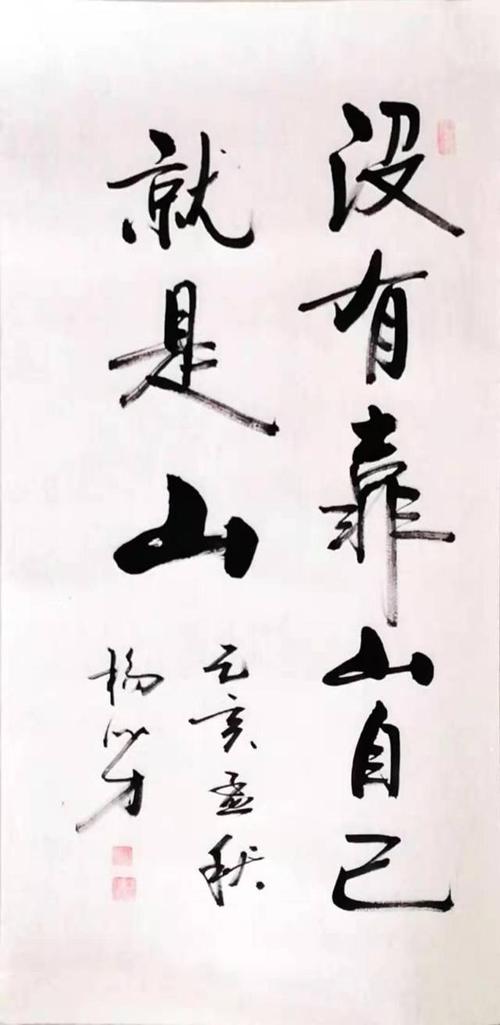 没有靠山自己
就是山
己亥孟秋
杨